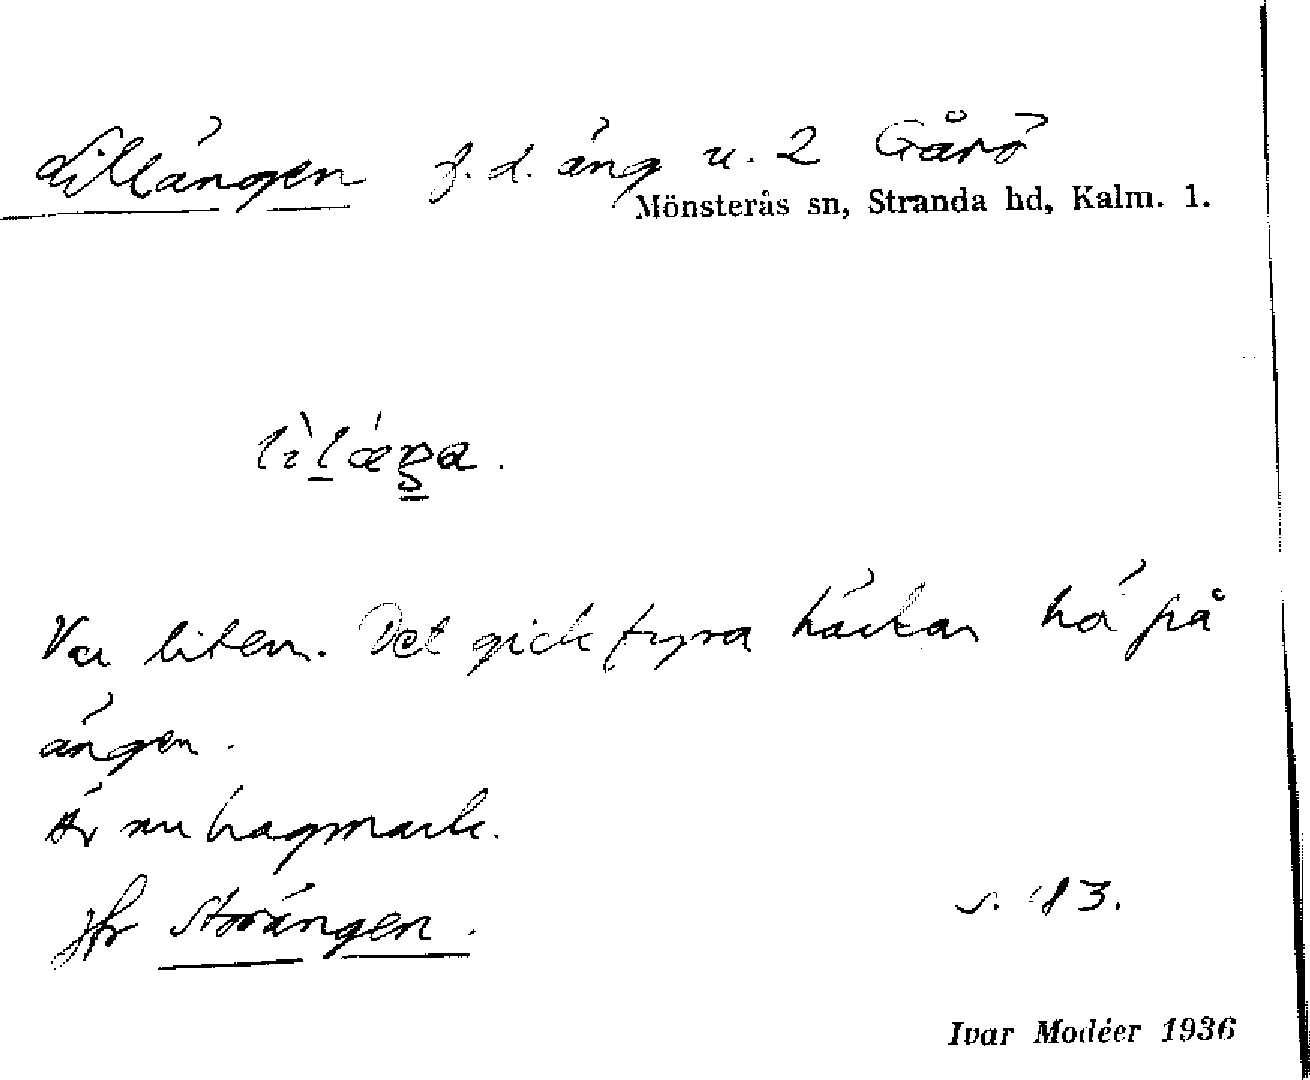 Lillängen f.d. äng u. 2 Gårö
Mönsterås sn, Stranda hd, Kalm. l.
Var liten. Det gick fyra häckar hö på
ängen.
Är nu hagmark.
Jfr Storängen.
s. 183.
Ivar Modéer 1936